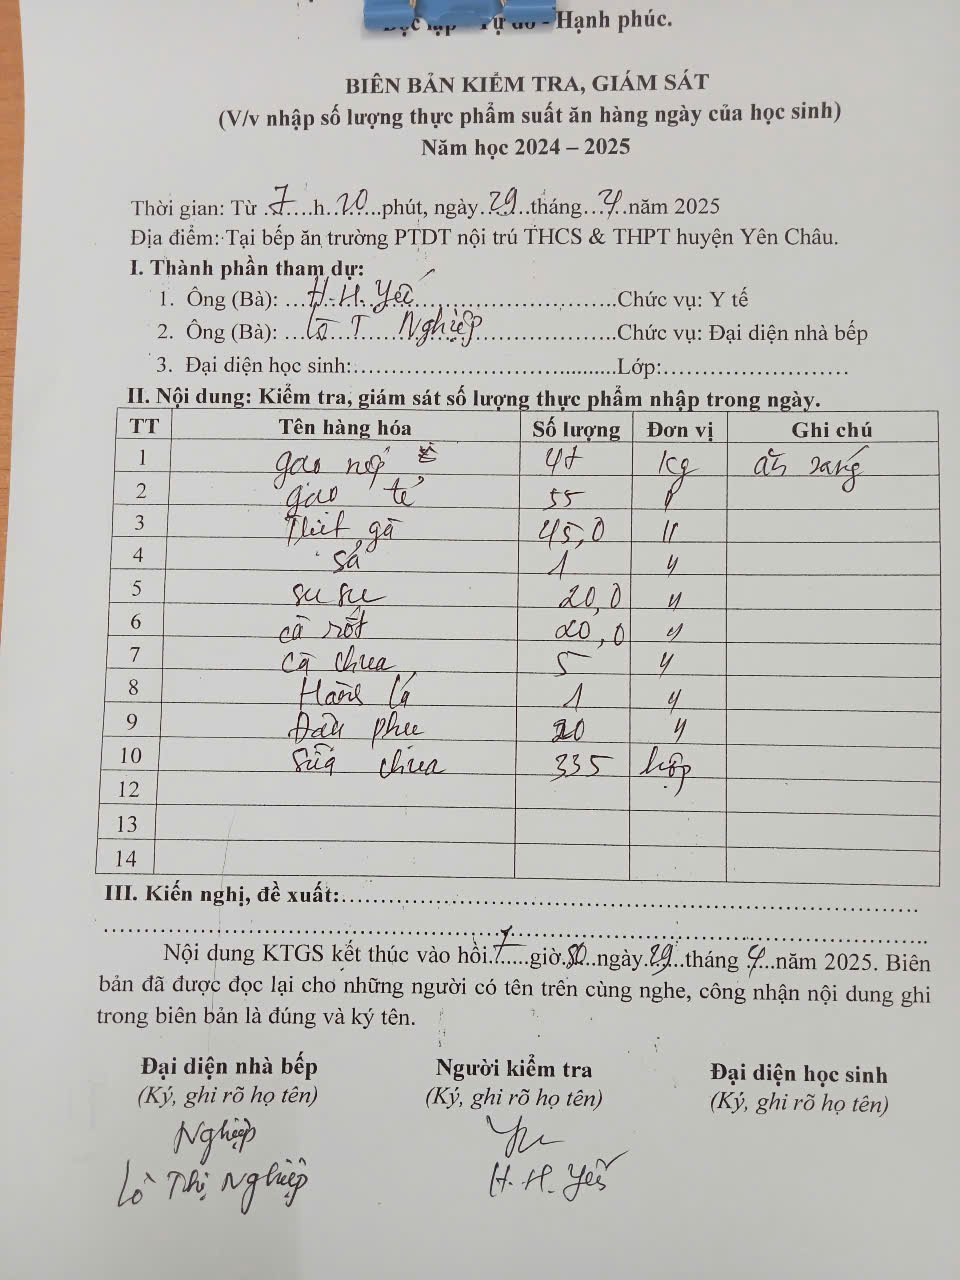 Độc lập - Tự do - Hạnh phúc.
BIÊN BẢN KIỂM TRA, GIÁM SÁT
(V/v nhập số lượng thực phẩm suất ăn hàng ngày của học sinh)
Năm học 2024 – 2025
Thời gian: Từ 7 h 20 phút, ngày 29 tháng 4 năm 2025
Địa điểm: Tại bếp ăn trường PTDT nội trú THCS & THPT huyện Yên Châu.
I. Thành phần tham dự:
1. Ông (Bà): H.H.Yến Chức vụ: Y tế
2. Ông (Bà): Lò T Nghiệp Chức vụ: Đại diện nhà bếp
3. Đại diện học sinh: Lớp:
II. Nội dung: Kiểm tra, giám sát số lượng thực phẩm nhập trong ngày.
TT Tên hàng hóa Số lượng Đơn vị Ghi chú
1 gạo nếp kg ăn sáng
2 gạo tẻ 55
3 Thịt gà 45,0 "
4 sả 1 "
5 su su 20,0 "
6 cà rốt 20,0 "
7 cà chua 5 "
8 Hành lá 1 "
9 Đậu phụ 20 "
10 Sữa chua 335 hộp
12
13
14
III. Kiến nghị, đề xuất:
Nội dung KTGS kết thúc vào hồi 7 giờ 30 ngày 29 tháng 4 năm 2025. Biên
bản đã được đọc lại cho những người có tên trên cùng nghe, công nhận nội dung ghi
trong biên bản là đúng và ký tên.
Đại diện nhà bếp Người kiểm tra Đại diện học sinh
(Ký, ghi rõ họ tên) (Ký, ghi rõ họ tên) (Ký, ghi rõ họ tên)
Nghiệp
Lò Thị Nghiệp H.H.Yến